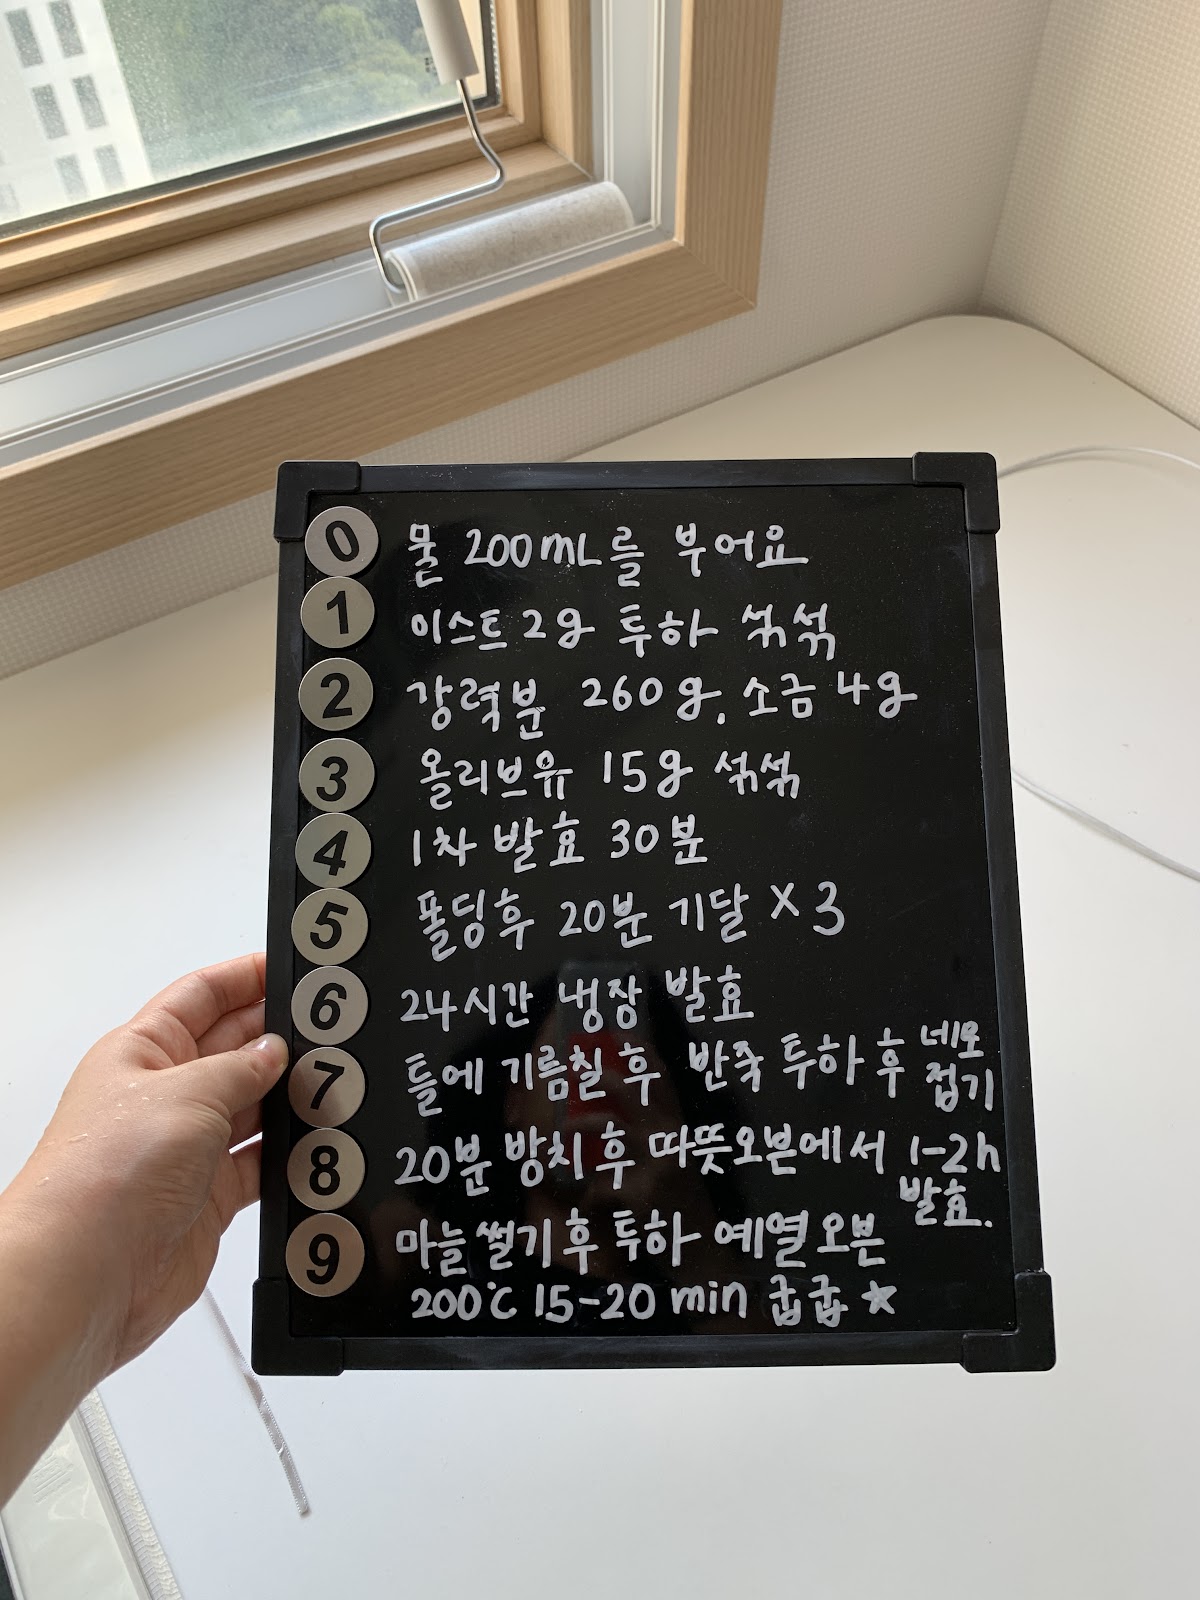 0 물 200mL를 부어요
1 이스트 2g 투하 섞섞
2 강력분 260g, 소금 4g
3 올리브유 15g 섞섞
4 1차 발효 30분
5 폴딩후 20분 기달 X 3
6 24시간 냉장 발효
7 틀에 기름칠 후 반죽 투하 후 네모
접기
8 20분 방치 후 따뜻오븐에서 1-2h
발효.
9 마늘 썰기 후 투하 예열 오븐
200℃ 15-20 min 굽굽 ★